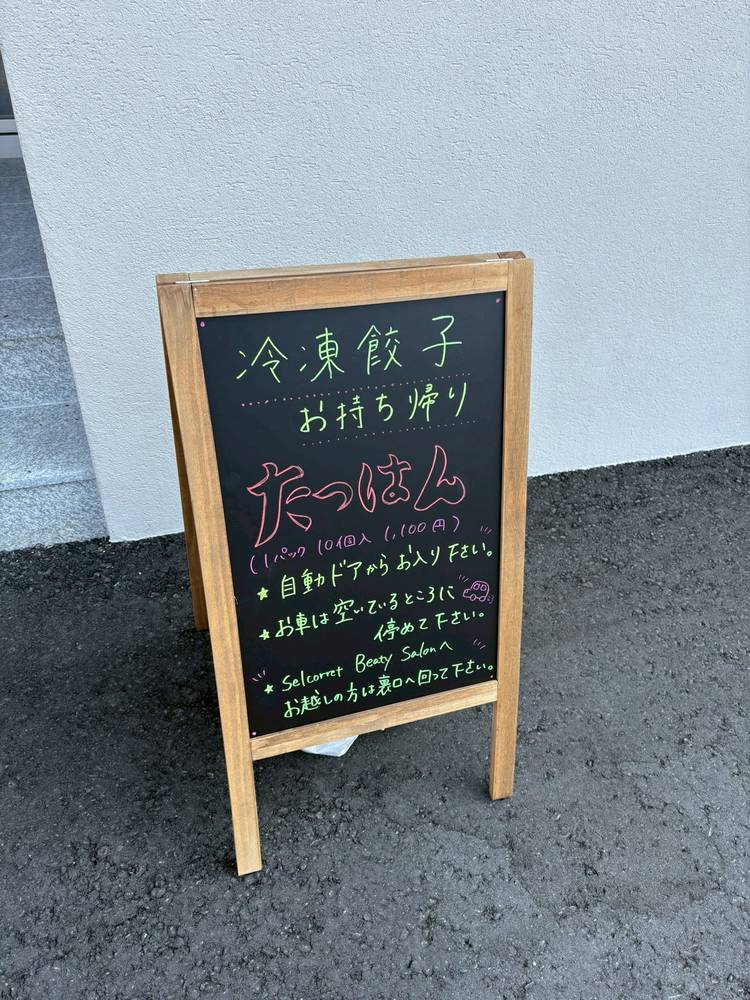 冷凍餃子
お持ち帰り
たっはん
(1パック 10個入 1,100円)
★自動ドアからお入り下さい。
★お車は空いているところに
停めて下さい。
★Selcorret Beaty Salonへ
お越しの方は裏口へ回って下さい。